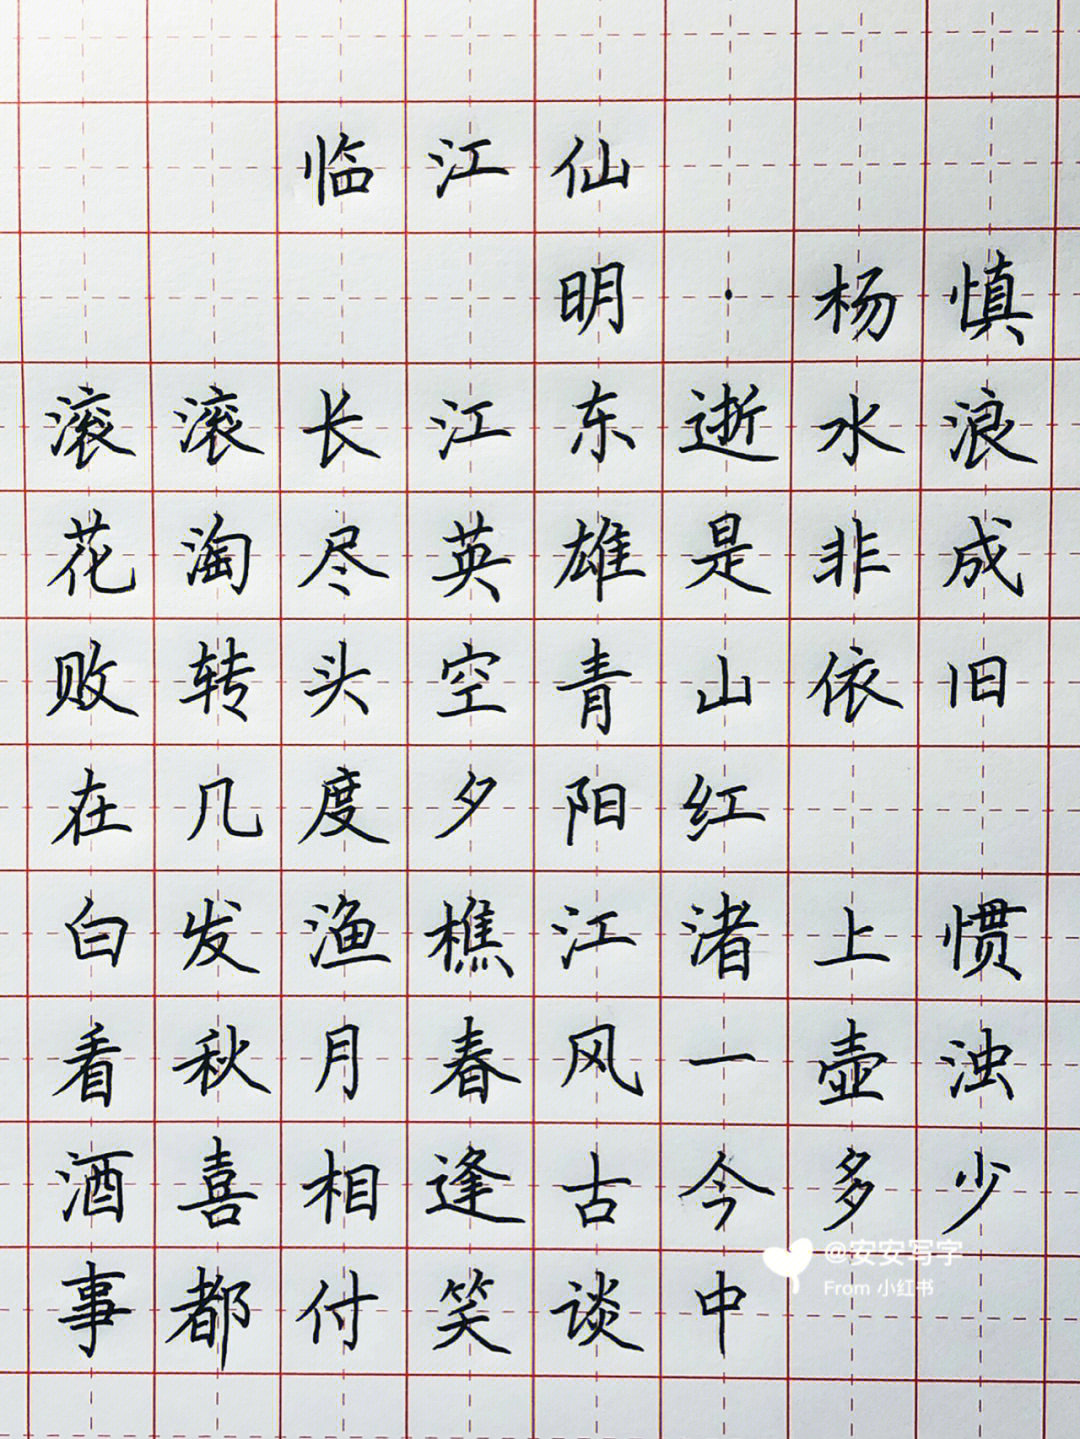 临江仙
明·杨慎
滚滚长江东逝水浪
花淘尽英雄是非成
败转头空青山依旧
在几度夕阳红
白发渔樵江渚上惯
看秋月春风一壶浊
酒喜相逢古今多少
事都付笑谈中
@安安写字
From 小红书